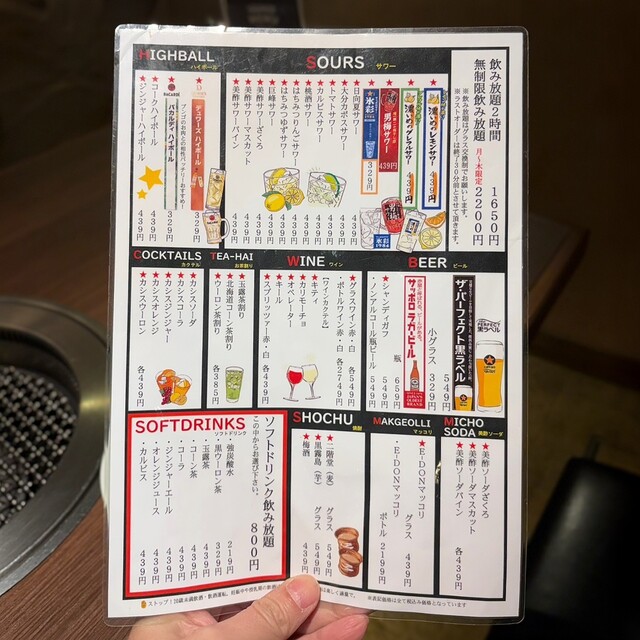 飲み放題2時間 1650円
無制限飲み放題 月～木限定 2200円
※飲み放題はグラス交換制でお願いします。
※ラストオーダーは終了30分前とさせて頂きます。
HIGHBALL
ハイボール
デュワーズハイボール 329円
ブンゴのお肉との相性バッチリ!おすすめ!
BACARDI
★バカルディハイボール 329円
★コークハイボール 439円
★ジンジャーハイボール 439円
SOURS サワー
★濃いめのレモンサワー 439円
★濃いめのグレフルサワー 439円
★男梅サワー 439円
★氷彩サワー 329円
★日向夏サワー 439円
★大分カボスサワー 439円
★トマトサワー 439円
★カルピスサワー 439円
★桃酒サワー 439円
★はちみつりんごサワー 439円
★はちみつゆずサワー 439円
★巨峰サワー 439円
★美酢サワーざくろ 439円
★美酢サワーマスカット 439円
★美酢サワーパイン 439円
COCKTAILS
カクテル
★カシスソーダ
★カシスコーラ
★カシスジンジャー
★カシスオレンジ
★カシスウーロン
各439円
TEA-HAI
お茶割り
★玉露茶割り
★北海道コーン茶割り
★ウーロン茶割り
各385円
WINE ワイン
★グラスワイン赤・白 各549円
・ボトルワイン赤・白 各2749円
【ワインカクテル】
★キティ
★カリモーチョ
★オペレーター
★キール
★スプリッツァー赤・白
各439円
BEER ビール
ザ・パーフェクト黒ラベル 549円
小グラス 329円
PERFECT
黒ラベル
サッポロラガービール 瓶 659円
JAPAN'S
OLDEST
BRAND
★シャンディガフ 549円
・ノンアルコール瓶ビール 549円
SOFTDRINKS
ソフトドリンク
ソフトドリンク飲み放題 800円
この中からお選び下さい。
・強炭酸水 219円
・黒ウーロン茶 329円
・玉露茶 439円
・コーン茶 439円
・コーラ 439円
・ジンジャーエール 439円
・オレンジジュース 439円
・カルピス 439円
SHOCHU 焼酎
★二階堂(麦) グラス 549円
★黒霧島(芋) グラス 549円
★梅酒 グラス 439円
MAKGEOLLI
マッコリ
★E-DONマッコリ グラス 439円
・E-DONマッコリ ボトル 2199円
MICHO
SODA 美酢ソーダ
★美酢ソーダざくろ
★美酢ソーダマスカット
★美酢ソーダパイン
各439円
ストップ!20歳未満飲酒・飲酒運転。妊娠中や授乳期の飲酒
は楽しく適量で。
※表記価格は全て税込み価格となっています